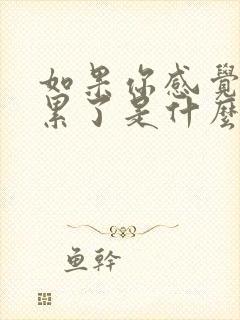 如果你感覺
累了是什麼
鱼幹